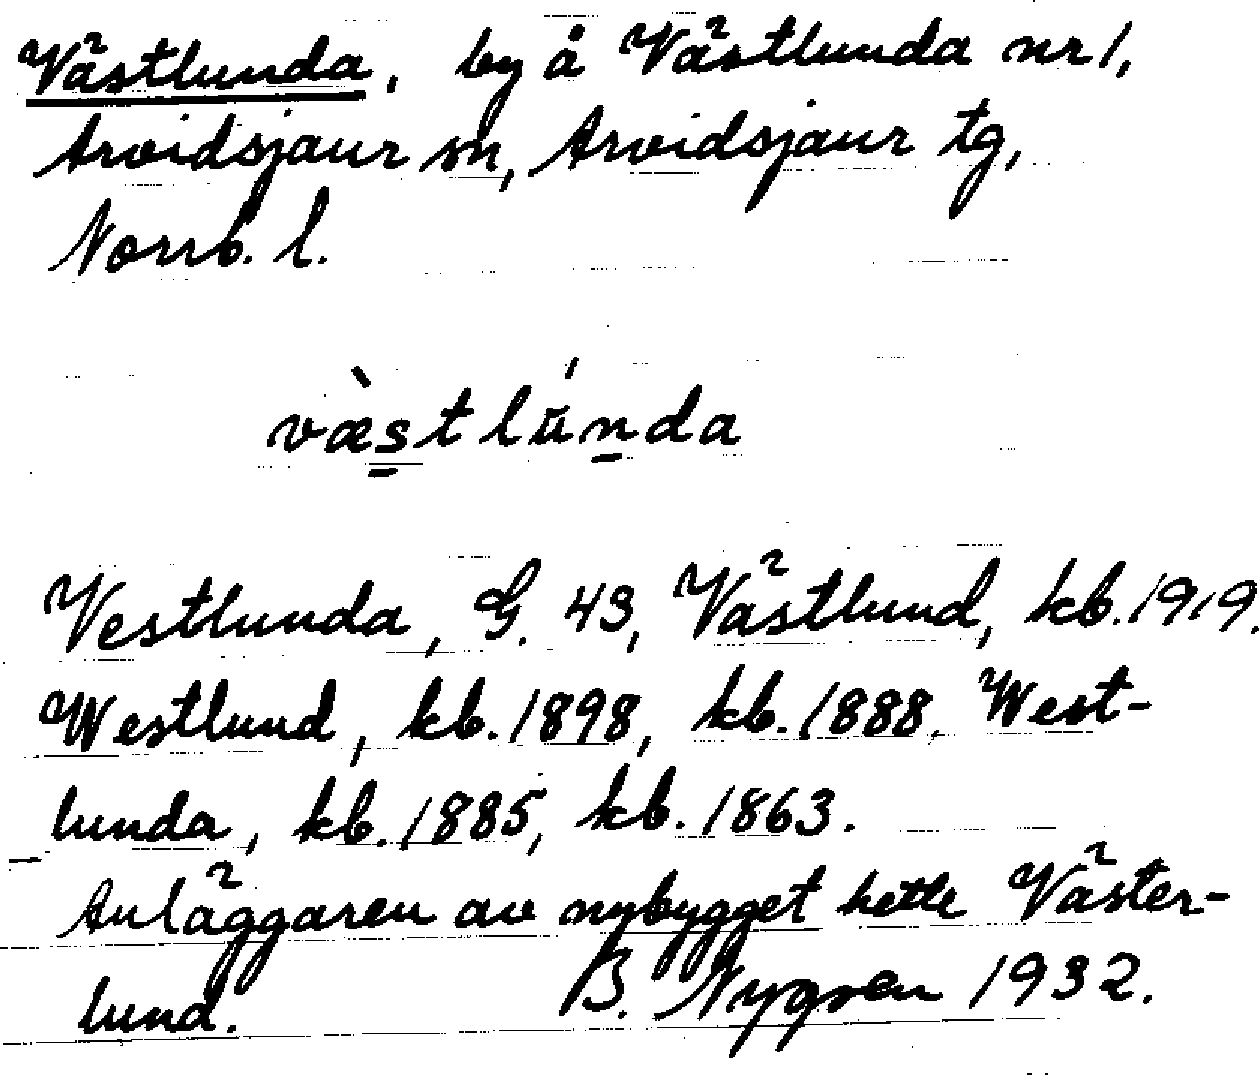 Västlunda, by å Västlunda nr 1,
Arvidsjaur sn, Arvidsjaur tg,
Norrb. l.
væ̀stlúnda
Vestlunda, G. 43, Västlund, kb. 1919.
Westlund, kb. 1898, kb. 1888. West-
lunda, kb. 1885, kb. 1863.
Anläggaren av nybygget hette Väster-
lund. B. Nygren 1932.